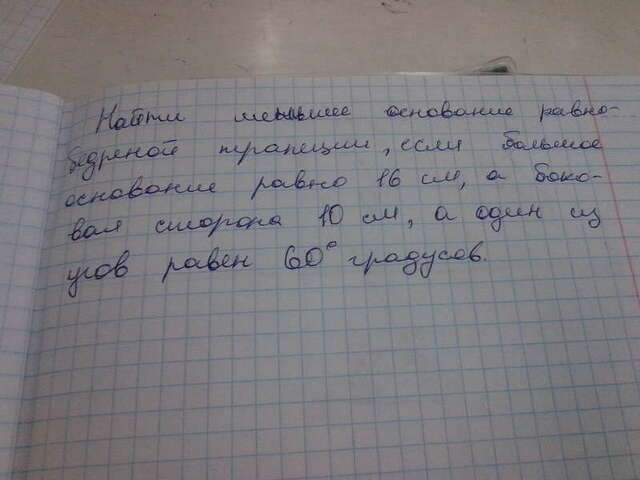 Найти меньшее основание равно-
бедреной трапеции, если большое
основание равно 16 см, а боко-
вая сторона 10 см, а один из
угов равен 60° градусов.